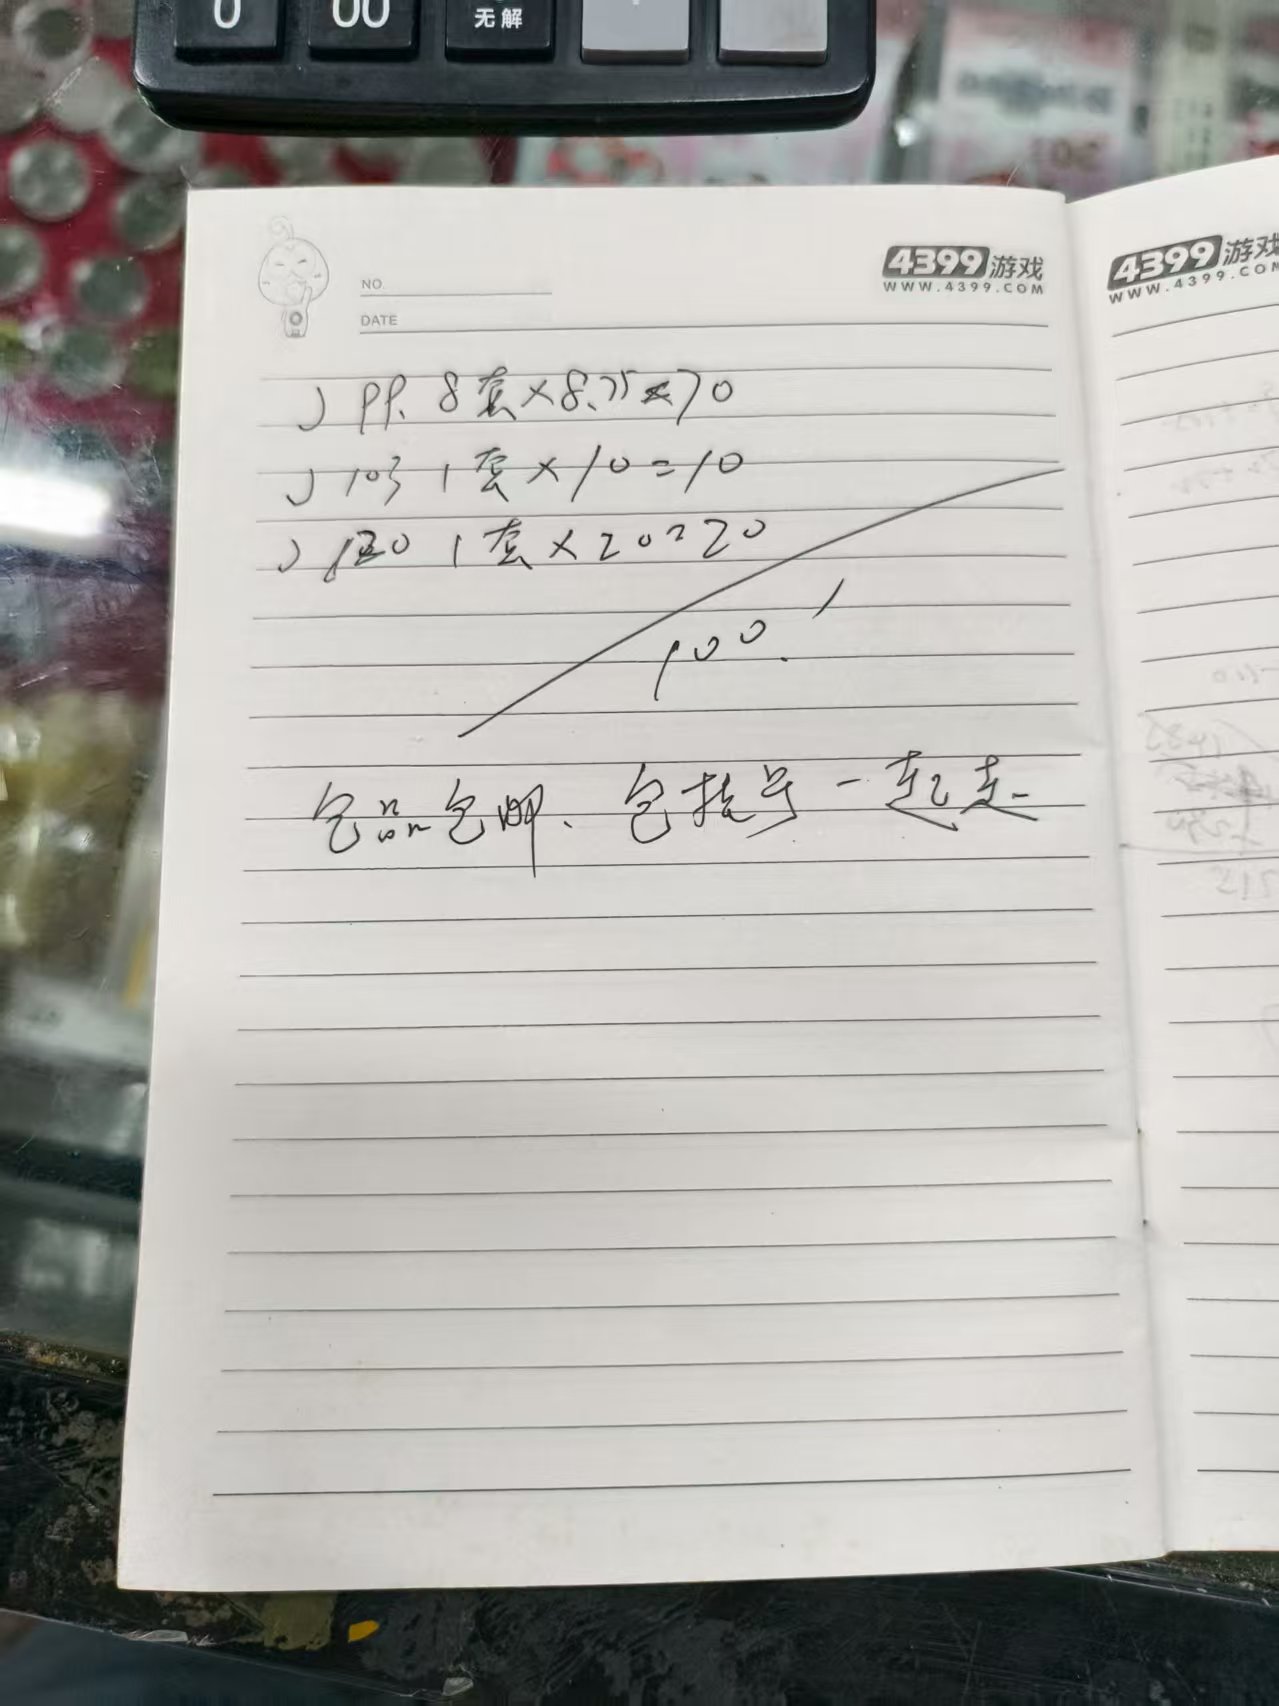 0 00 无解
4399游戏
WWW.4399.COM
NO.
DATE
4399游戏
WWW.4399.COM
PP. 8套×8.75=70
1套×10=10
1套×20=20
100.
包品包邮、包挂号一起走